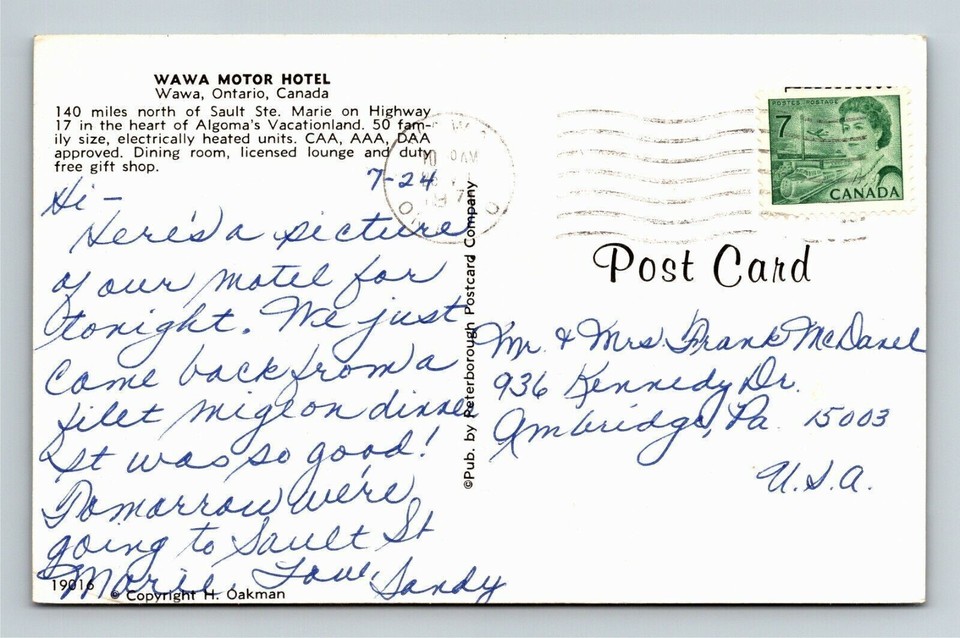 WAWA MOTOR HOTEL
Wawa, Ontario, Canada
140 miles north of Sault Ste. Marie on Highway
17 in the heart of Algoma's Vacationland. 50 fam-
ily size, electrically heated units. CAA, AAA, DAA
approved. Dining room, licensed lounge and duty
free gift shop.
7-24
Hi -
Here's a picture
of our motel for
tonight. We just
came back from a
filet migeon dinner
It was so good!
Tomorrow we're
going to Sault St
Marie. Love, Sandy
19016
© Copyright H. Oakman
©Pub. by Peterborough Postcard Company
POSTES POSTAGE
7
CANADA
Post Card
Mr. & Mrs. Frank McDanel
936 Kennedy Dr.
Ambridge, Pa. 15003
U.S.A.